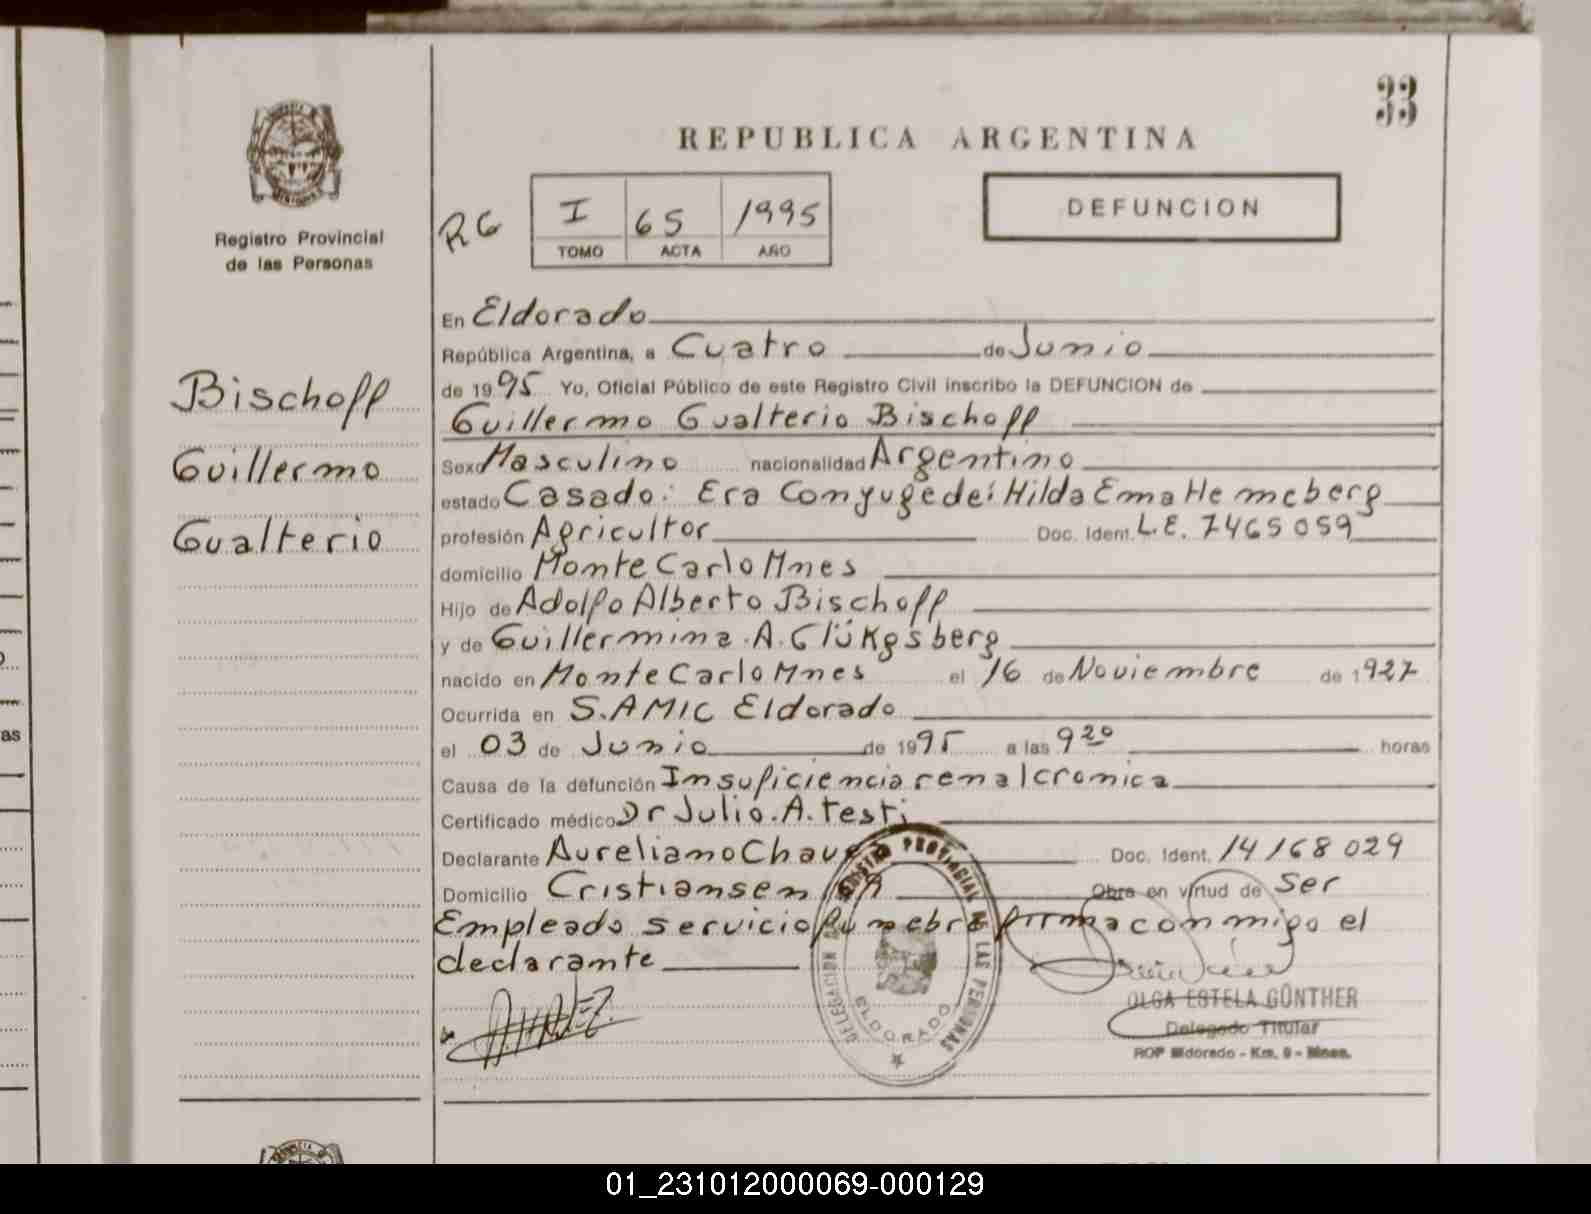 33
REPUBLICA ARGENTINA
Registro Provincial
de las Personas
RG
I 65 1995
TOMO ACTA AÑO
DEFUNCION
Bischoff
Guillermo
Gualterio
En Eldorado
República Argentina, a Cuatro de Junio
de 1995 Yo, Oficial Público de este Registro Civil inscribo la DEFUNCION de
Guillermo Gualterio Bischoff
Sexo Masculino nacionalidad Argentino
estado Casado: Era Conyuge de: Hilda Ema Hemeberg
profesión Agricultor Doc. Ident. L.E. 7465059
domicilio Monte Carlo Mnes
Hijo de Adolfo Alberto Bischoff
y de Guillermina A. Glükgsberg
nacido en Monte Carlo Mnes el 16 de Noviembre de 1927
Ocurrida en S.AMIC Eldorado
el 03 de Junio de 1995 a las 9 20 horas
Causa de la defunción Insuficiencia renal cronica
Certificado médico Dr Julio. A. Testi
Declarante Aureliano Doc. Ident. 14168029
Domicilio Cristiansen Obra en virtud de Ser
Empleado servicio funebre firma conmigo el
declarante
DELEGACION REGISTRO PROVINCIAL DE LAS PERSONAS
ELDORADO
OLGA ESTELA GÜNTHER
Delegado Titular
ROP Eldorado - Km. 9 - Mnes.
as
01_231012000069-000129